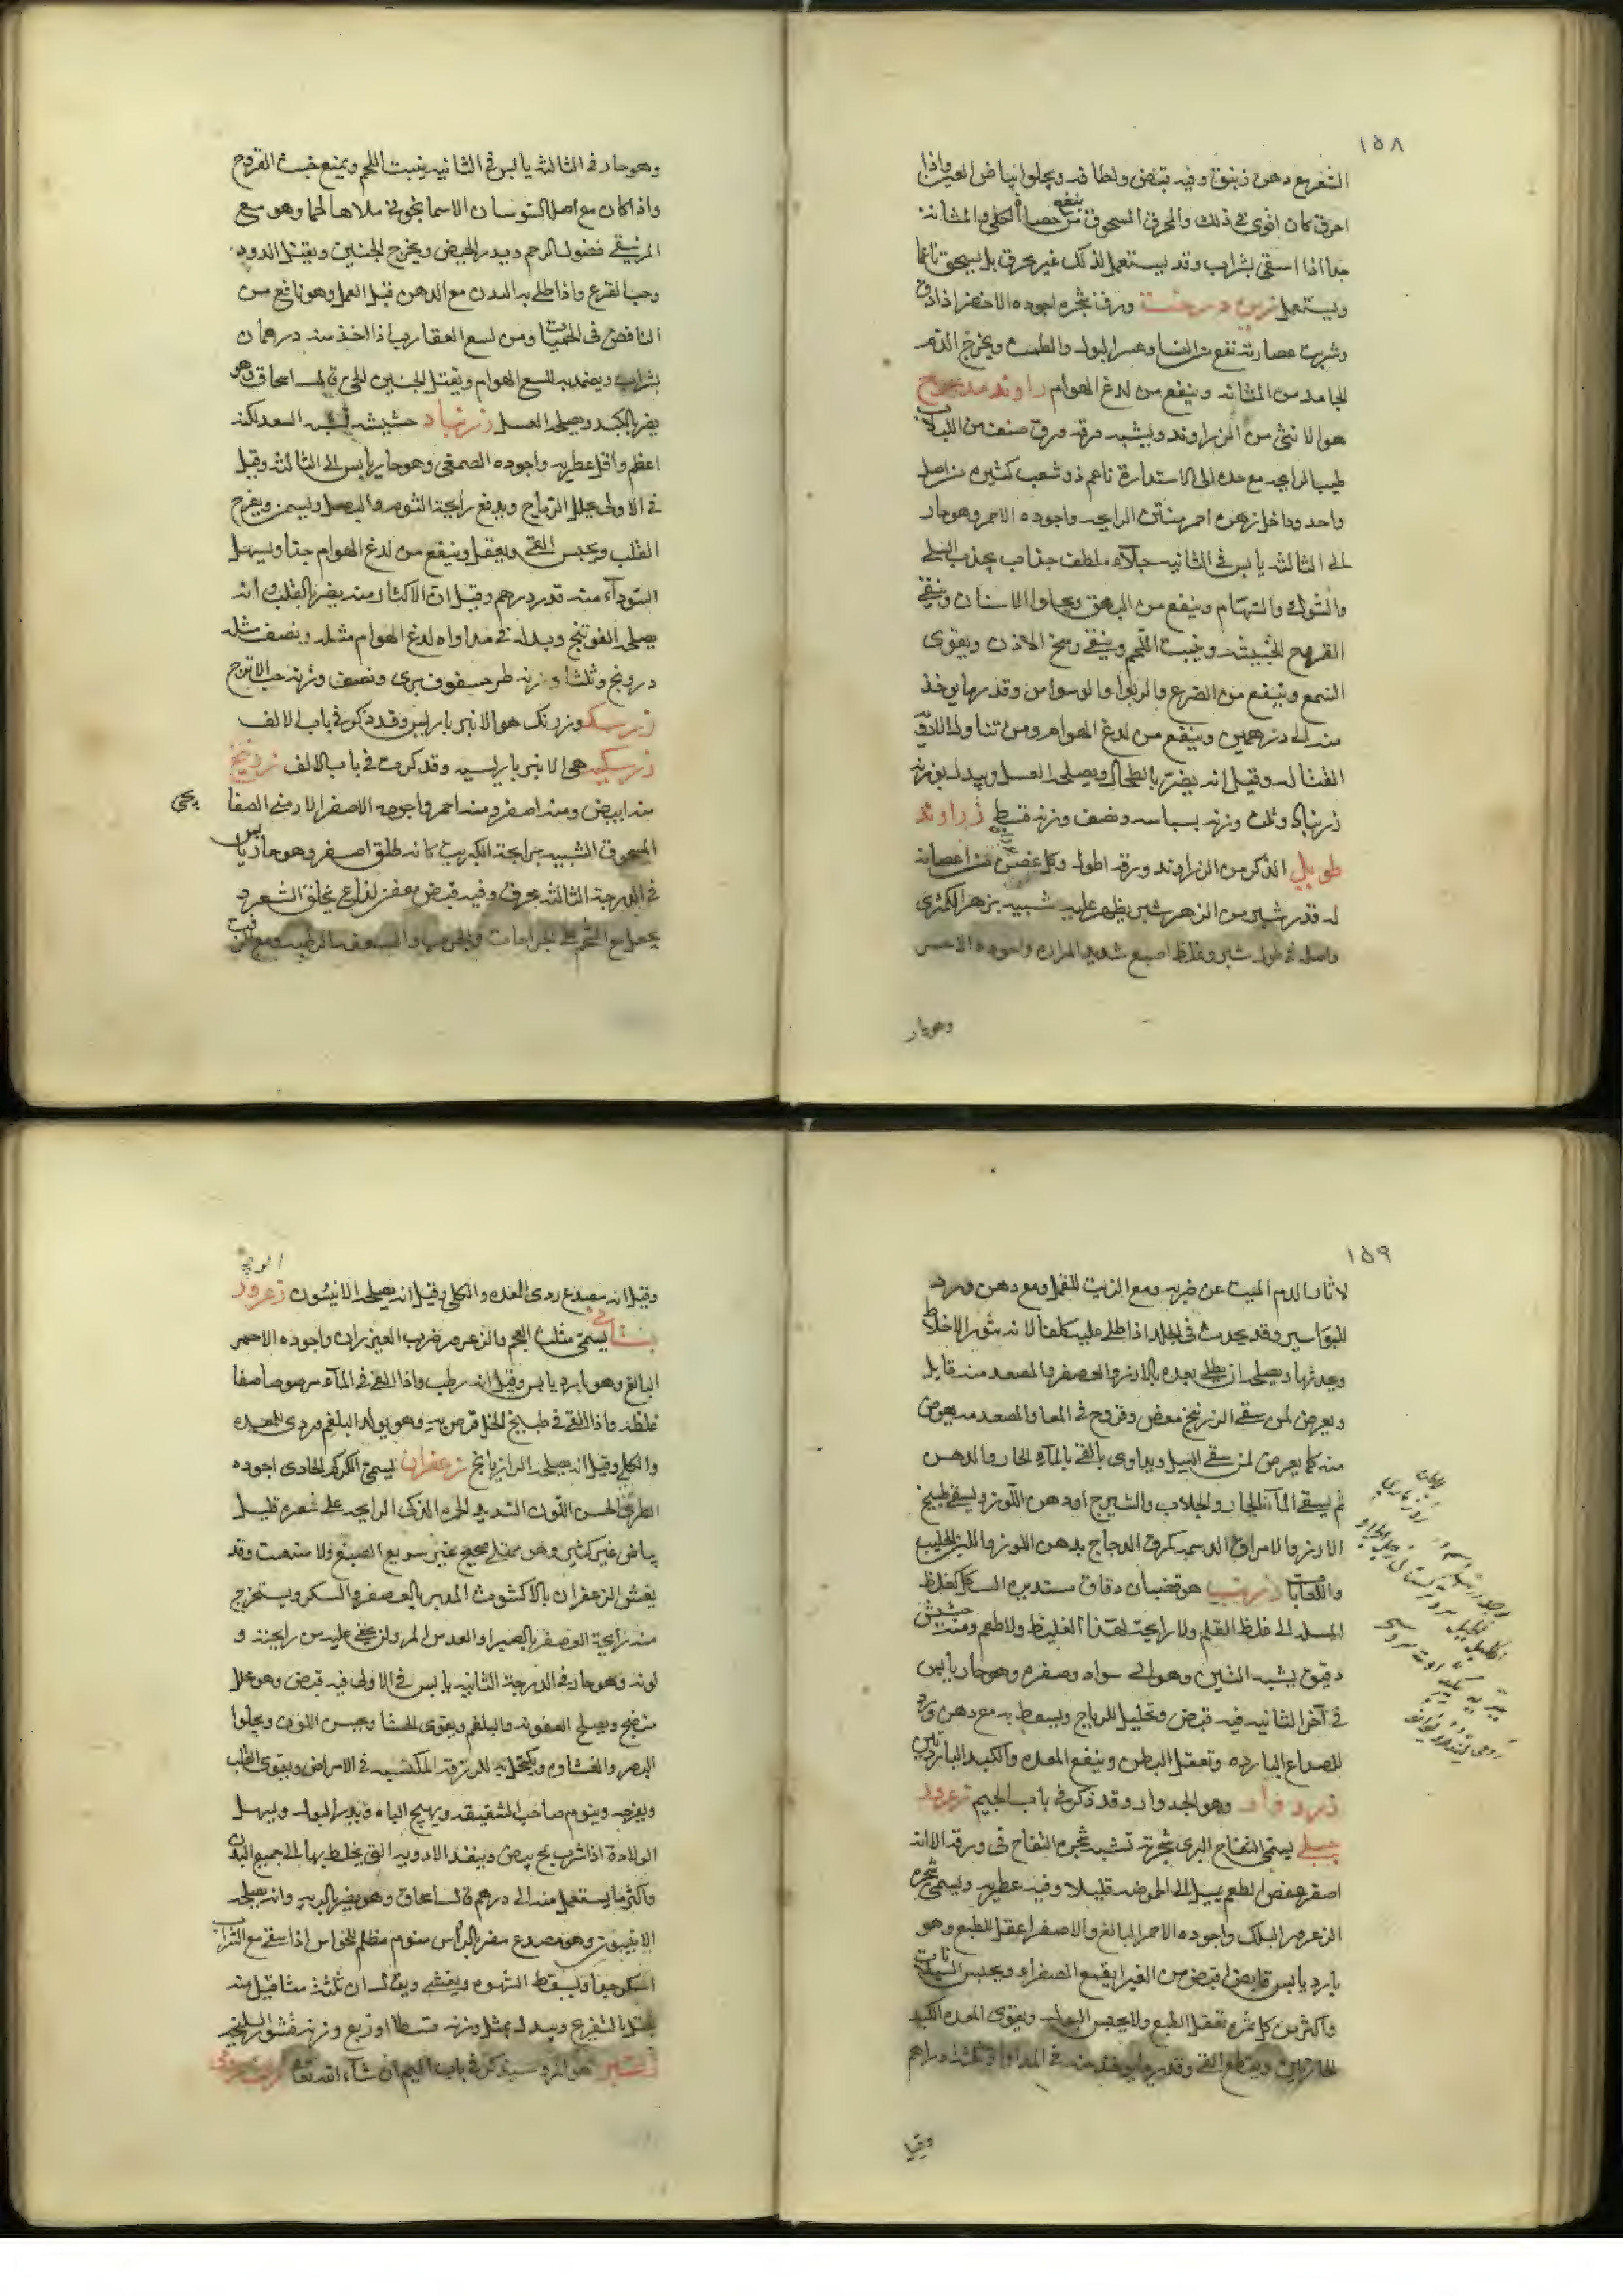 ١٥٨
التفريع دهن زنبق وفيه قبض ولطافه ويجلوا بياض العين واذا
احرق كان اقوى فى ذلك والمحرق المسحوق ينفع من حصاة الكلى والمثانه
جدا اذا استقى بشراب وقد يستعمل لذلك غير محرق بل يسحق ناعما
ويستعمل زرين درخت ورق شجره اجوده الاخضر اذا دق
وشربت عصارته نفع من النسا وعسر البول والطمث ويخرج الدم
الجامد من المثانه وينفع من لدغ الهوام راوند مدحرج
هو الانثى من الزراوند ويشبه ورقه ورق صنف من اللبلاب
طيب الرايحه مع حده الى الاستدارة ناعم ذو شعب كثيره من اصل
واحد وداخل زهره احمر منتن الرايحه واجوده الاحمر وهو حار
الى الثالثه يابس فى الثانيه جلاء ملطف جذاب يجذب السلى
والشوك والسهام وينفع من البهق ويجلوا الاسنان وينقى
القروح الخبيثه وينبت اللحم وينقى وسخ الاذن ويقوى
السمع وينفع من الصرع والربو والوسواس وقدر ما يوخذ
منه الى درهمين وينفع من لدغ الهوام ومن تناول الادويه
القتاله وقيل انه يضر بالطحال ويصلحه العسل وبدله بوزنه
زرنباد وثلث وزنه بسباسه ونصف وزنه قسط زراوند
طويل الذكر من الزراوند ورقه اطول وكل غصن من اغصانه
له قدر شبر من الزهر شبر يظهر عليه شبيه بزهر الكمثرى
واصله فى طول شبر وغلظ اصبع شديد المراره واجوده الاحمر
وهو حار
وهو حار فى الثالثه يابس فى الثانيه ينبت اللحم ويمنع خبث القروح
واذا كان مع اصل السوسان الاسمانجونى ملاها لحما وهو مع
المر ينقى فضول الرحم ويدر الحيض ويخرج الجنين ويقتل الدود
وحب القرع واذا طلى به البدن مع الدهن قبل العمل وهو نافع من
النافض فى الحميات ومن لسع العقارب اذا اخذ منه درهمان
بشراب ويضمد به للسع الهوام ويقتل الجنين الحى قال اسحاق وهو
يضر بالكبد ويصلحه العسل زرنباد حشيشه تشبه السعد لكنه
اعظم واقل عطريه واجوده الصمغى وهو حار يابس الى الثالثه وقيل
فى الاولى يحلل الرياح ويدفع رايحة الثوم والبصل ويسمن ويفرح
القلب ويحبس القى ويعقل وينفع من لدغ الهوام جدا ويسهل
السوداء منه قدر درهم وقيل ان الاكثار منه يضر بالقلب وانه
يصلحه الفوتنج وبدله فى مداواه لدغ الهوام مثله ونصف مثله
درونج وثلثا وزنه طرحشقوق برى ونصف وزنه حب الاترج
زرشك وزرنك هو الانبرباريس وقد ذكر فى باب الالف
زرسكيه هى الانبرباريسيه وقد ذكرت فى باب الالف زرنيخ
منه ابيض ومنه اصفر ومنه احمر واجوده الاصفر الارمنى الصفايحى
المسحوق الشبيه برايحة الكبريت كانه طلق اصفر وهو حار يابس
فى الدرجة الثالثه محرق وفيه قبض معفن لذاع يحلق الشعر و
يجعل مع الشحم على الجراحات والجرب والسعفه الرطبه ومع الزفت
١٥٩
لاثار الدم الميت عن ضربه ومع الزيت للقمل ومع دهن ورد
للبواسير وقد يحدث فى الجلد اذا طلى عليه كلفا لانه يثور الاخلاط
ويحدثها ويصلحه ان يطلى بعده بالارز والعصفر والمصعد منه قاتل
ويعرض لمن سقى الزرنيخ مغص وقروح فى المعا والمصعد منه يعرض
منه كما يعرض لمن سقى السيل ويداوى بالقى بالماء الحار والدهن
ثم يسقى الماء الحار والجلاب والشيرج او دهن اللوز ويسقى طبيخ
الارز والامراق الدسمه كمرق الدجاج بدهن اللوز واللبن الحليب
واللعابات زرنب هو قضبان دقاق مستديره السكل كغلظ
المسله الى غلظ القلم ولا رايحة لهذا الغليظ ولا طعم ومنه حشيش
دقيق يشبه التبن وهو الى سواد وصفره وهو حار يابس
فى آخر الثانيه فيه قبض وتحليل للرياح ويسعط به مع دهن ورد
للصداع البارده وتعقل البطن وينفع المعده والكبد الباردتين
زرد وار وهو الجدوار وقد ذكر فى باب الجيم زعرور
جبلى يسمى التفاح البرى شجرته تشبه شجره التفاح فى ورقه الا انه
اصفر عفص الطعم يميل الى الحموضه قليلا وفيه عطريه ويسمى شجره
الزعرور البلك واجوده الاحمر البالغ والاصفر اعقل للطبع وهو
بارد يابس قابض اقبض من الغبيرا يقمع الصفراء ويحبس السيلانات
واكثر من كل ثمره تعقل الطبع ولا يحبس البول ويقوى المعده والكبد
الحارتين ويقطع القى وقدر ما يوخذ منه فى المداواة ثلثه دراهم
وقيل
وقيل انه مصدع ردى للمعده والكلى وقيل انه يصلحه الانيسون زعرور
بستانى يسمى مثلث العجم والزعرور ضرب العيزران واجوده الاحمر
البالغ وهو بارد يابس وقيل انه رطب واذا القى فى الماء مرصوصا صفا
غلظه واذا القى فى طبيخ الخل قرص به وهو يولد البلغم وردى للمعده
والكلى وقيل انه يصلحه الرازيانج زعفران يسمى الكركم الجادى اجوده
الطرى الحسن اللون الشديد الحمره الذكى الرايحه على شعره قليل
بياض غير كثير وهو ممتلى صحيح غير سريع الصبغ ولا متفتت وقد
يغش الزعفران بالاكشوث المدبر بالعصفر والسكر ويستخرج
منه رايحة العصفر بالعصير او العدس المر ولن يخفى عليه من رايحته و
لونه وهو حار فى الدرجة الثانيه يابس فى الاولى فيه قبض وهو محلل
منضج ويصلح العفونه والبلغم ويقوى الاحشا ويحسن اللون ويجلوا
البصر والغشاوه ويكتحل به للزرقه المكتسبه فى الامراض ويقوى القلب
ويفرحه وينوم صاحب الشقيقه ويهيج الباه ويدر البول ويسهل
الولادة اذا شرب بمح بيض وينفذ الادويه التى يخلط بها الى جميع البدن
واكثر ما يستعمل منه الى درهم قال اسحاق وهو يضر بالريه وانه يصلحه
الانيسون وهو مصدع مضر بالراس منوم مظلم للحواس اذا سقى مع الشراب
اسكر جدا ويسقط الشهوه ويغشى ويقال ان ثلثة مثاقيل منه
يقتل بالتفريح وبدله مثل وزنه قسطا او ربع وزنه قشور السليخه
هو المرو سيذكر فى باب الميم ان شاء الله تعالى